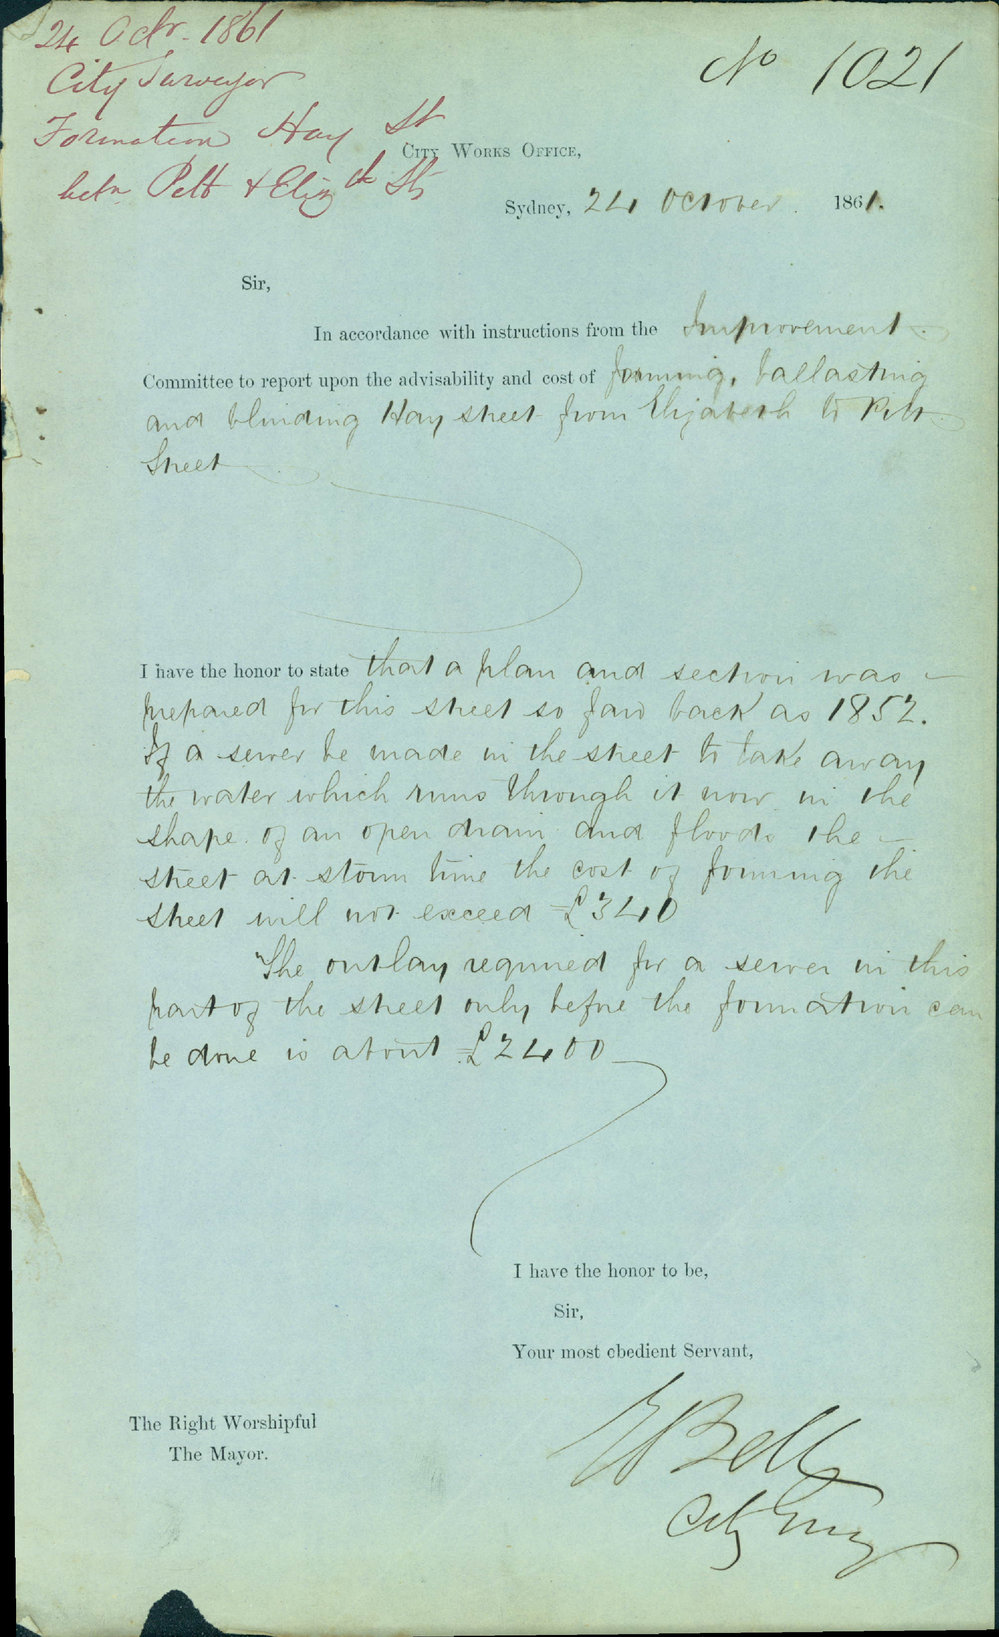 24 Octr. 1861
City Surveyor
Formation Hay St
betn Pitt & Elizth Sts
No 1021
City Works Office,
Sydney, 24 October 1861.
Sir,
In accordance with instructions from the Improvement
Committee to report upon the advisability and cost of forming, ballasting
and blinding Hay street from Elizabeth to Pitt
Street
I have the honor to state that a plan and section was
prepared for this street so far back as 1852.
If a sewer be made in the street to take away
the water which runs through it now in the
shape of an open drain and floods the
street at storm time the cost of forming the
street will not exceed £340
The outlay required for a sewer in this
part of the street only before the formation can
be done is about £2400
I have the honor to be,
Sir,
Your most obedient Servant,
The Right Worshipful
The Mayor.
E Bell
City